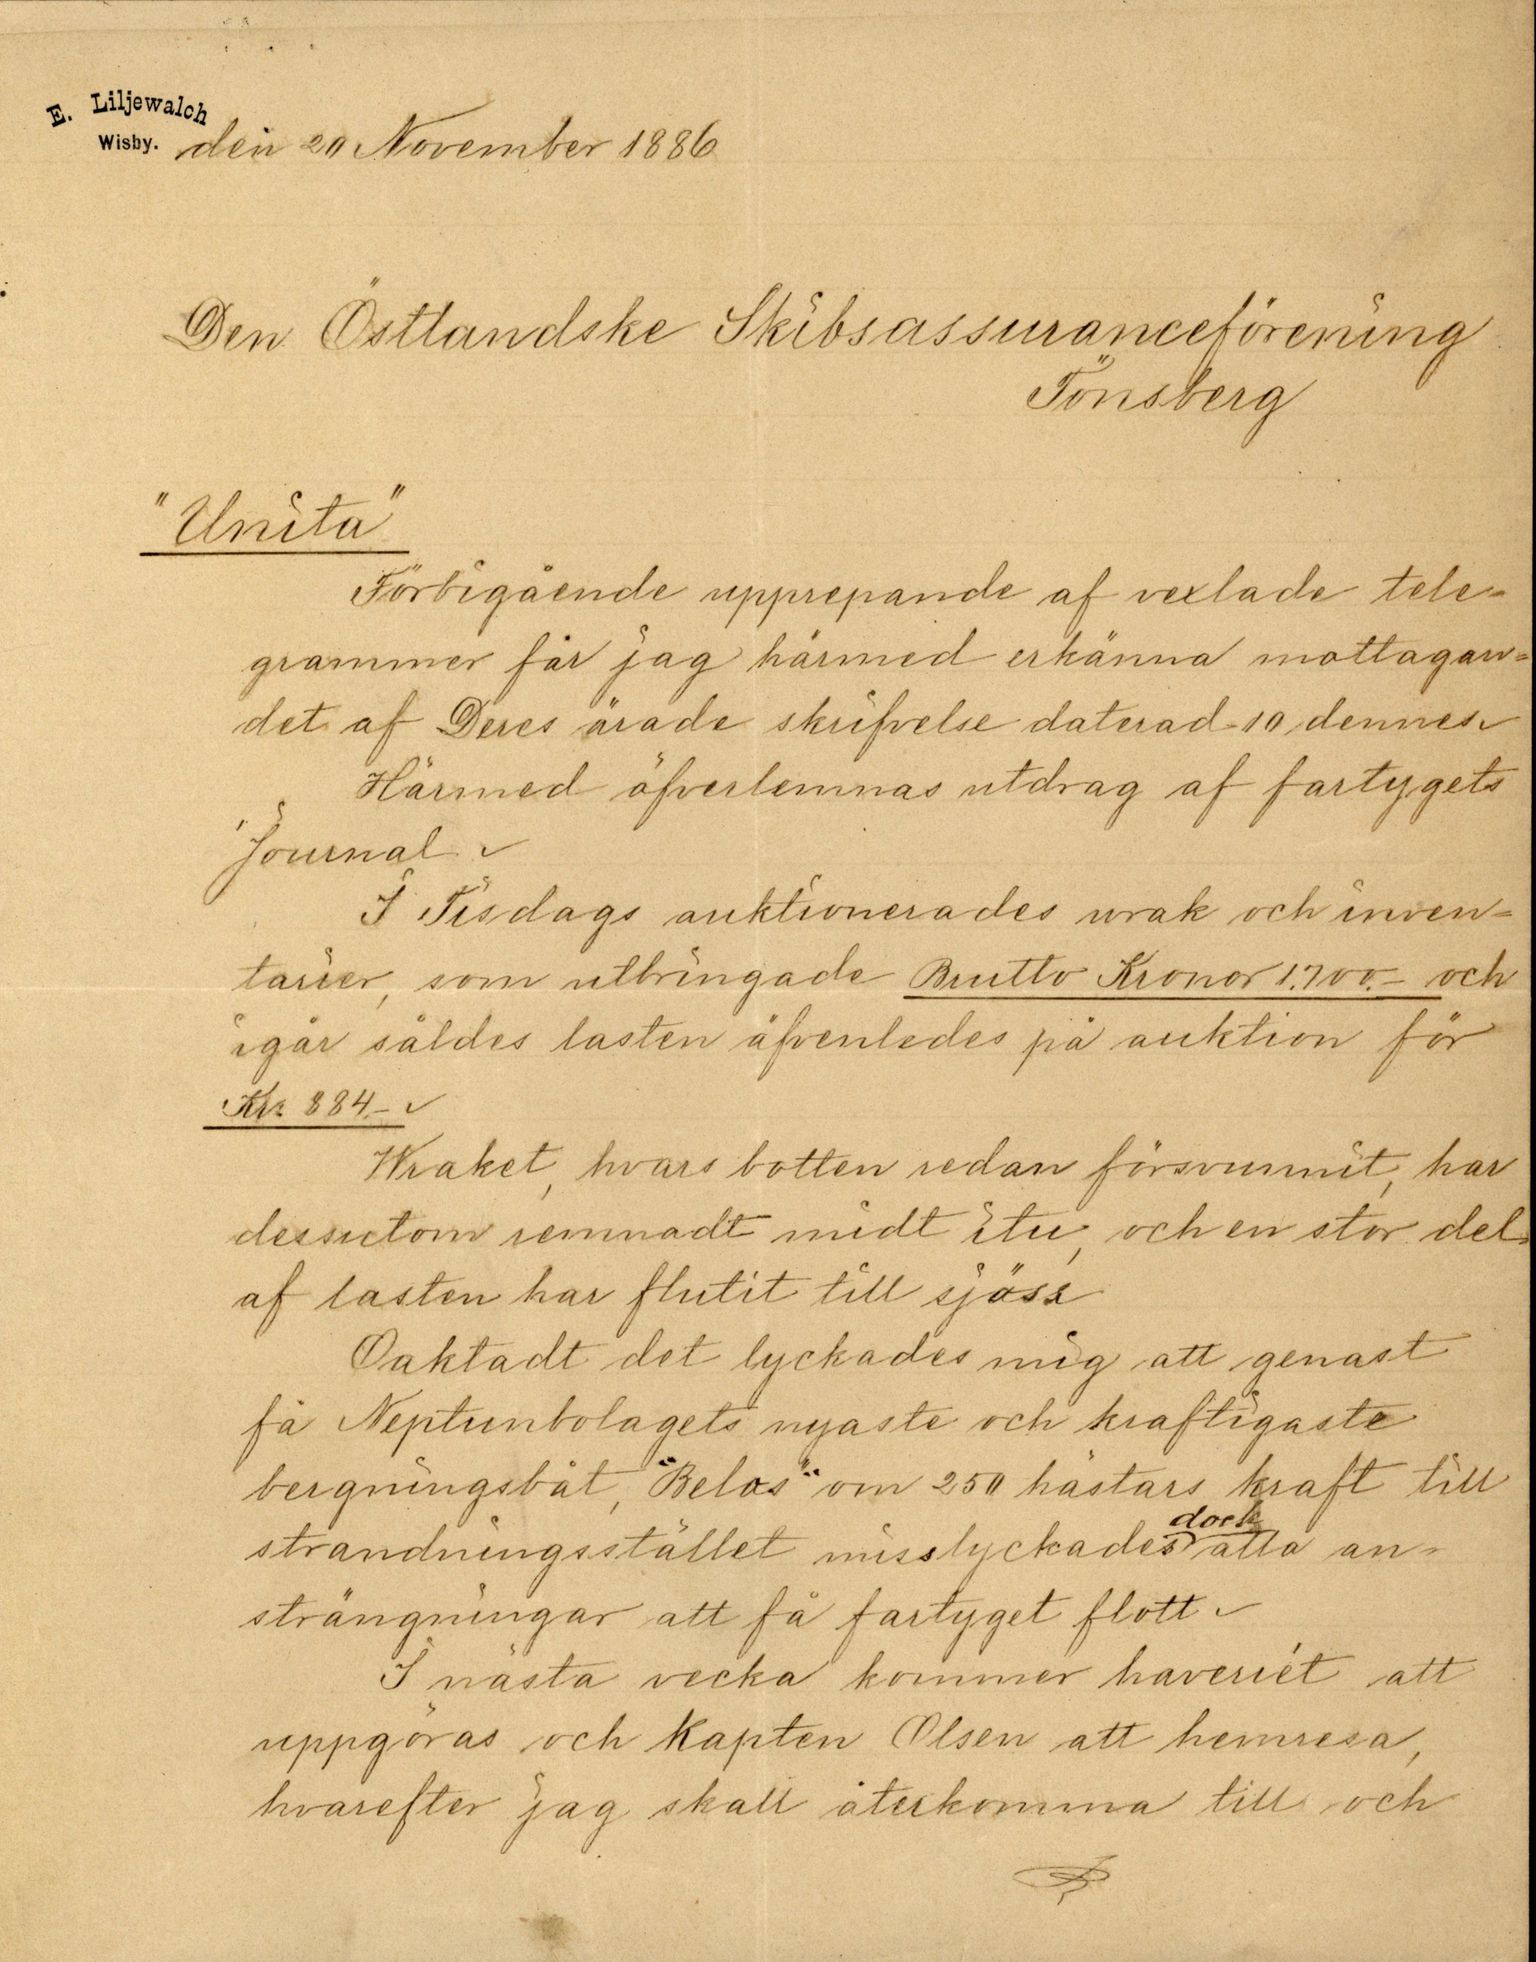 E. Liljewalch
Wisby.
den 20 November 1886
Den Östlandske Skibsassuranceförening
Tönsberg
"Unita"
Förbigående upprepande af vexlade tele=
grammer får jag härmed erkänna mottagan=
det af Deres ärade skrifvelse daterad 10 dennes
Härmed öfverlemnas utdrag af fartygets
Journal
I Tisdags auktionerades wrak och inven=
tarier, som utbringade Brutto Kronor 1.700.- och
igår såldes lasten äfvenledes på auktion för
Kr 884.-
Wraket, hvars botten redan försvunnit, har
dessutom remnadt midt itu, och en stor del
af lasten har flutit till sjöss
Oaktadt det lyckades mig att genast
få Neptunbolagets nyaste och kraftigaste
bergningsbåt, "Belos" om 250 hästars kraft till
strandningsstället misslyckades dock alla an=
strängningar att få fartyget flott
I nästa vecka kommer haveriet att
uppgöras och Kapten Olsen att hemresa,
hvarefter jag skall återkomma till och